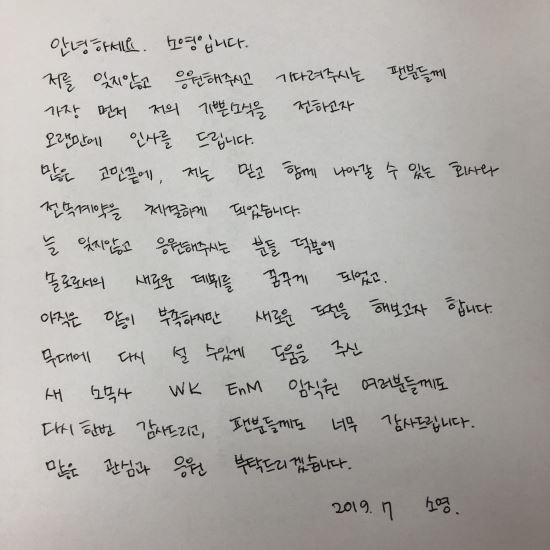 안녕하세요. 소영입니다.
저를 잊지않고 응원해주시고 기다려주시는 팬분들께
가장 먼저 저의 기쁜소식을 전하고자
오랜만에 인사를 드립니다.
많은 고민끝에, 저는 믿고 함께 나아갈 수 있는 회사와
전속계약을 체결하게 되었습니다.
늘 잊지않고 응원해주시는 분들 덕분에
솔로로서의 새로운 데뷔를 꿈꾸게 되었고.
아직은 많이 부족하지만 새로운 도전을 해보고자 합니다.
무대에 다시 설 수있게 도움을 주신
새 소속사 WK EnM 임직원 여러분들께도
다시한번 감사드리고, 팬분들께도 너무 감사드립니다.
많은 관심과 응원 부탁드리겠습니다.
2019. 7 소영.